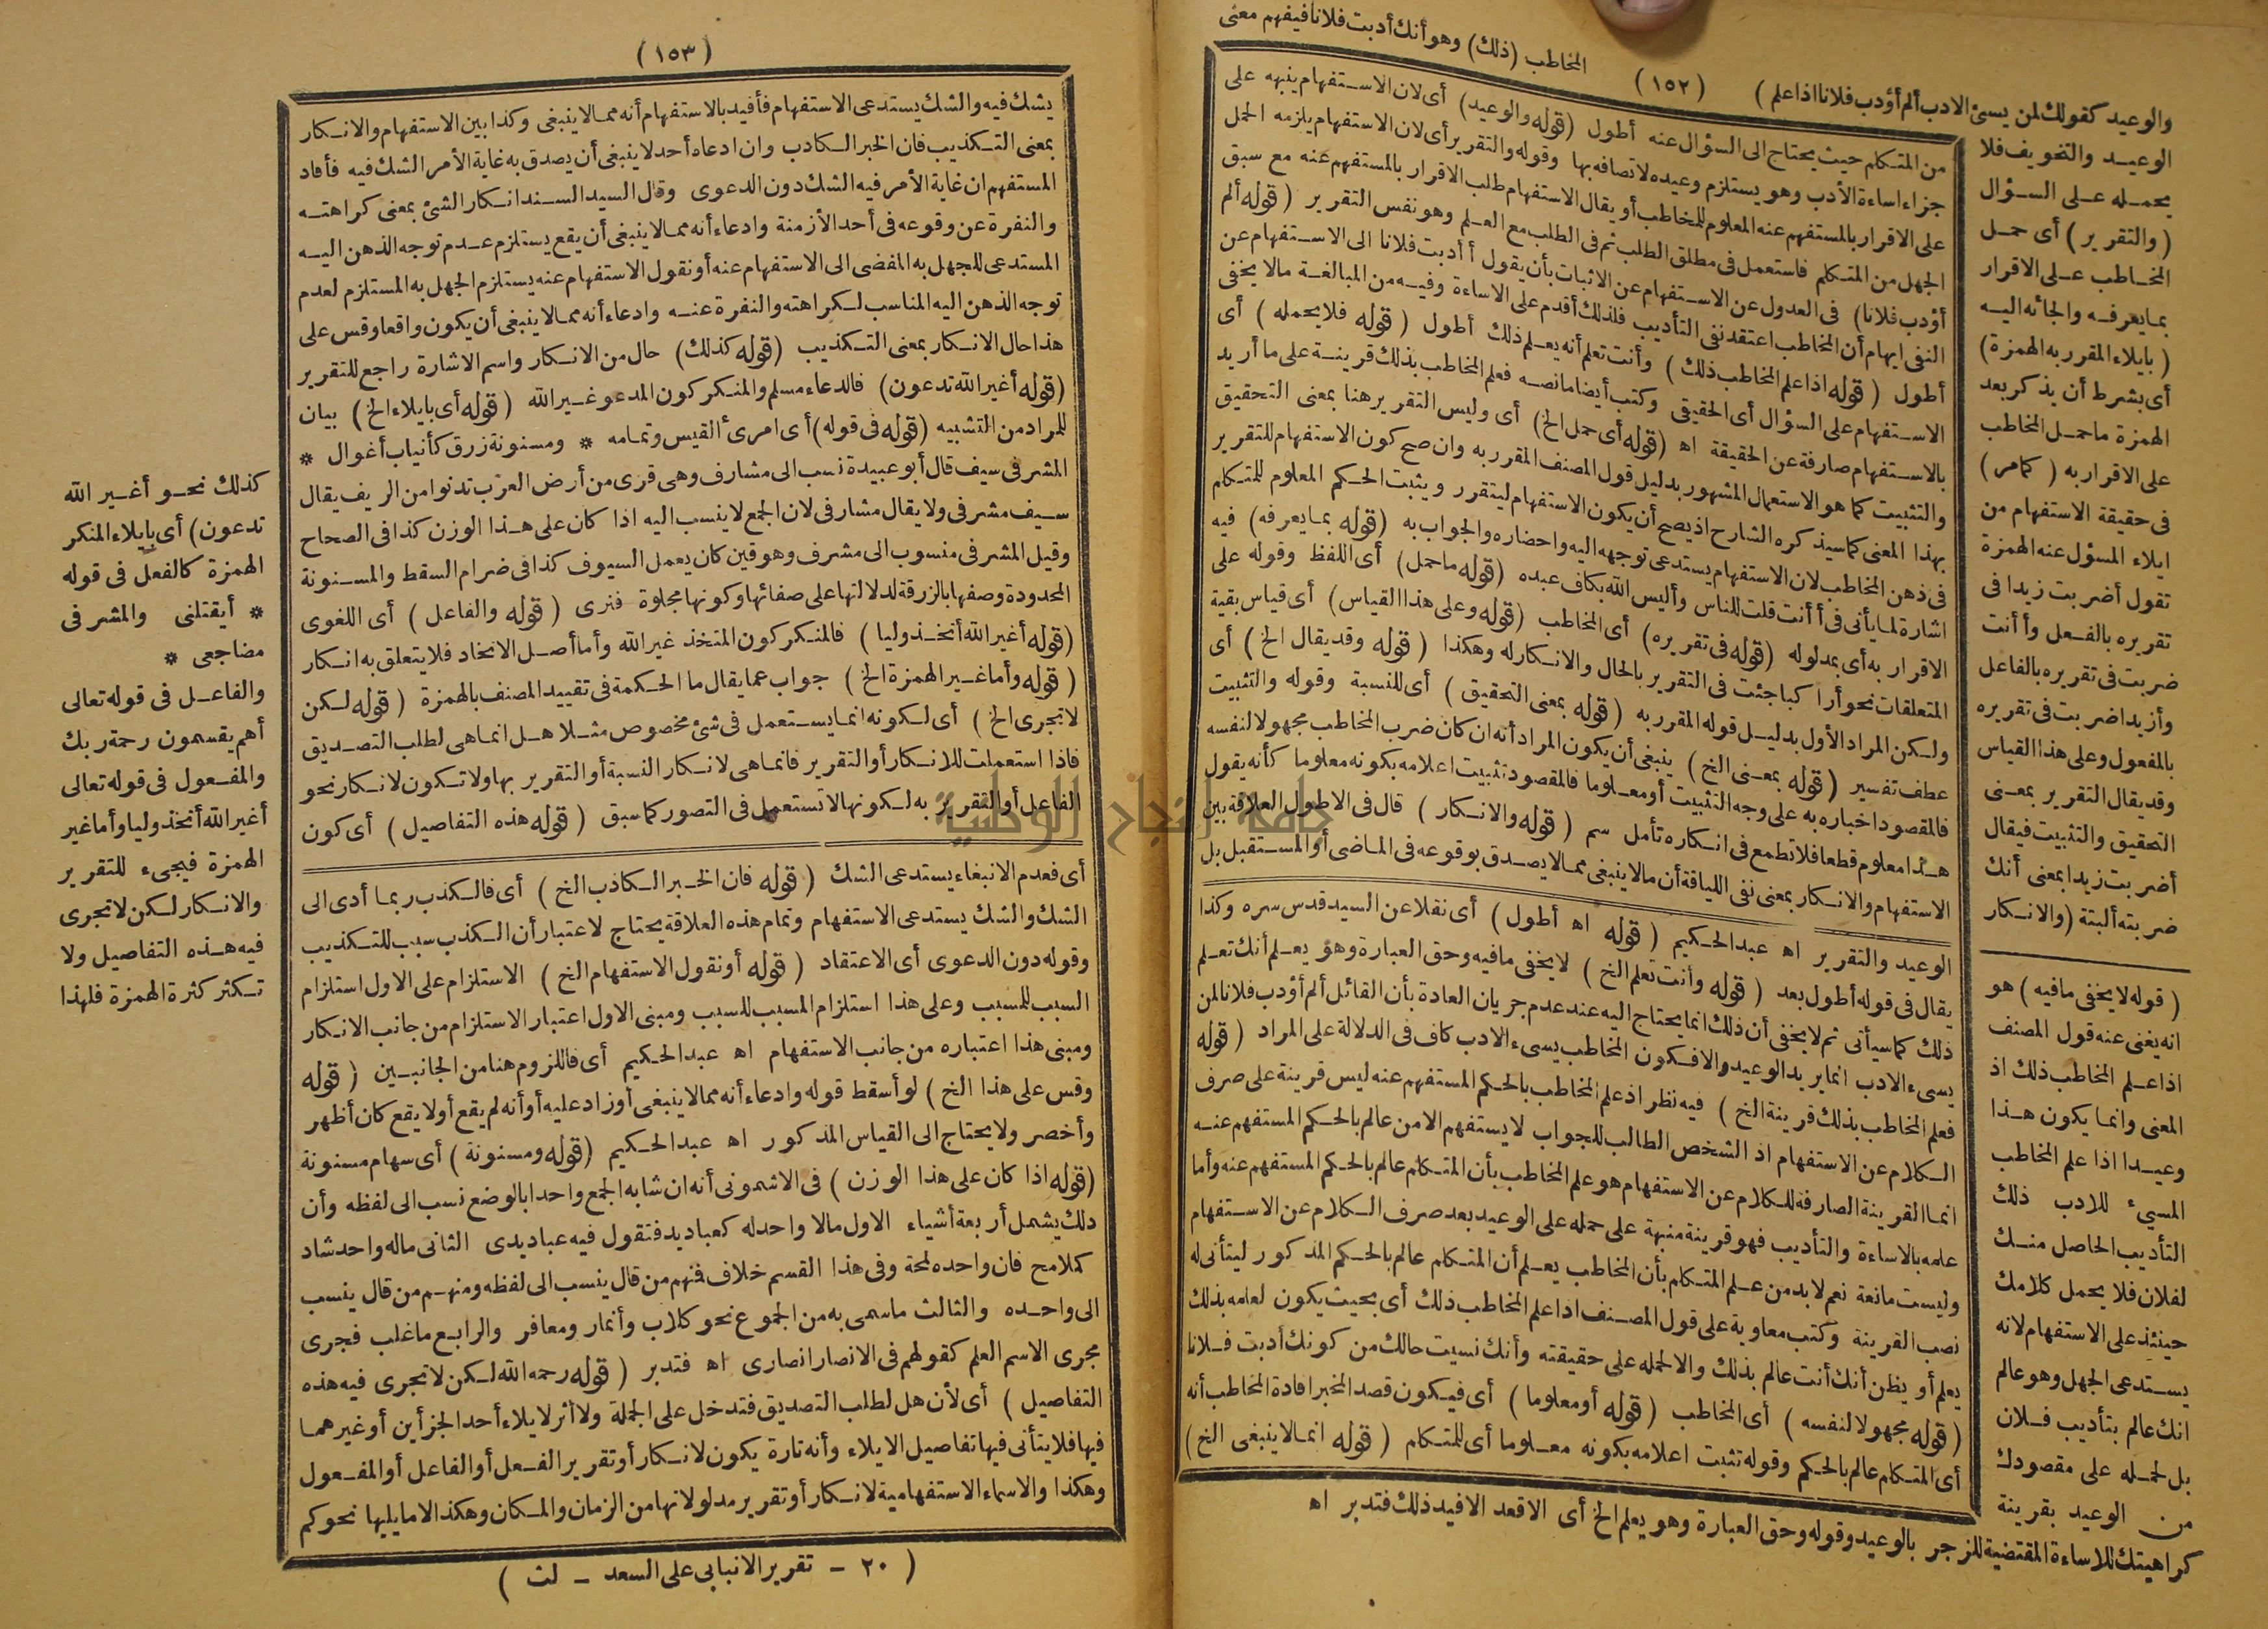 والوعيد كقولك لمن يسئ الادب ألم أؤدب فلانا اذا علم )
( ١٥٢ )
المخاطب (ذلك) وهو أنك أدبت فلانا فيفهم معنى
الوعيد والتخويف فلا
يحمله على السؤال
(والتقرير) أى حمل
المخاطب على الاقرار
بما يعرفه والجائه اليه
( بايلاء المقرر به الهمزة)
أى بشرط أن يذكر بعد
الهمزة ما حمل المخاطب
على الاقرار به ( كمامر)
فى حقيقة الاستفهام من
ايلاء المسؤل عنه الهمزة
تقول أضربت زيدا فى
تقريره بالفعل وأأنت
ضربت فى تقريره بالفاعل
وأزيدا ضربت فى تقريره
بالمفعول وعلى هذا القياس
وقد يقال التقرير بمعنى
التحقيق والتثبيت فيقال
أضربت زيدا بمعنى أنك
ضربته ألبتة (والانكار
من المتكلم حيث يحتاج الى السؤال عنه أطول (قوله والوعيد) أى لان الاستفهام ينبه على
جزاء اساءة الأدب وهو يستلزم وعيده لاتصافه بها وقوله والتقرير أى لان الاستفهام يلزمه الحمل
على الاقرار بالمستفهم عنه المعلوم للمخاطب أو يقال الاستفهام طلب الاقرار بالمستفهم عنه مع سبق
الجهل من المتكلم فاستعمل فى مطلق الطلب ثم فى الطلب مع العلم وهو نفس التقرير (قوله ألم
أؤدب فلانا) فى العدول عن الاستفهام عن الاثبات بأن يقول أأدبت فلانا الى الاستفهام عن
النفى ايهام أن المخاطب اعتقد نفى التأديب فلذلك أقدم على الاساءة وفيه من المبالغة مالا يخفى
أطول (قوله اذا علم المخاطب ذلك) وأنت تعلم أنه يعلم ذلك أطول (قوله فلا يحمله) أى
الاستفهام على السؤال أى الحقيقى وكتب أيضا مانصه فعلم المخاطب بذلك قرينة على ما أريد
بالاستفهام صارفة عن الحقيقة اه (قوله أى حمل الخ) أى وليس التقرير هنا بمعنى التحقيق
والتثبيت كما هو الاستعمال المشهور بدليل قول المصنف المقرر به وان صح كون الاستفهام للتقرير
بهذا المعنى كما سيذكره الشارح اذ يصح أن يكون الاستفهام ليتقرر ويثبت الحكم المعلوم للمتكلم
فى ذهن المخاطب لان الاستفهام يستدعى توجهه اليه واحضاره والجواب به (قوله بما يعرفه) فيه
اشارة لما يأتى فى أأنت قلت للناس وأليس الله بكاف عبده (قوله ما حمل) أى اللفظ وقوله على
الاقرار به أى بمدلوله (قوله فى تقريره) أى المخاطب (قوله وعلى هذا القياس) أى قياس بقية
المتعلقات نحو أراكبا جئت فى التقرير بالحال والانكار له وهكذا (قوله وقد يقال الخ) أى
ولكن المراد الأول بدليل قوله المقرر به (قوله بمعنى التحقيق) أى للنسبة وقوله والتثبيت
عطف تفسير (قوله بمعنى الخ) ينبغى أن يكون المراد أنه ان كان ضرب المخاطب مجهولا لنفسه
فالمقصود اخباره به على وجه التثبيت أو معلوما فالمقصود تثبيت اعلامه بكونه معلوما كأنه يقول
هذا معلوم قطعا فلا تطمع فى انكاره تأمل سم (قوله والانكار) قال فى الاطول العلاقة بين
الاستفهام والانكار بمعنى نفى اللياقة أن مالا ينبغى مما لا يصدق بوقوعه فى الماضى أو المستقبل بل
الوعيد والتقرير اه عبد الحكيم (قوله اه أطول) أى نقلا عن السيد قدس سره وكذا
يقال فى قوله أطول بعد (قوله وأنت تعلم الخ) لا يخفى مافيه وحق العبارة وهو يعلم أنك تعلم
ذلك كما سيأتى ثم لا يخفى أن ذلك انما يحتاج اليه عند عدم جريان العادة بأن القائل ألم أؤدب فلانا لمن
يسىء الادب انما يريد الوعيد والا فكون المخاطب يسىء الادب كاف فى الدلالة على المراد (قوله
فعلم المخاطب بذلك قرينة الخ) فيه نظر اذ علم المخاطب بالحكم المستفهم عنه ليس قرينة على صرف
الكلام عن الاستفهام اذ الشخص الطالب للجواب لا يستفهم الا من عالم بالحكم المستفهم عنه
انما القرينة الصارفة للكلام عن الاستفهام هو علم المخاطب بأن المتكلم عالم بالحكم المستفهم عنه وأما
علمه بالاساءة والتأديب فهو قرينة منبهة على حمله على الوعيد بعد صرف الكلام عن الاستفهام
وليست مانعة نعم لابد من علم المتكلم بأن المخاطب يعلم أن المتكلم عالم بالحكم المذكور ليتأتى له
نصب القرينة وكتب معاوية على قول المصنف اذا علم المخاطب ذلك أى بحيث يكون لعلمه بذلك
يعلم أو يظن أنك أنت عالم بذلك والا لحمله على حقيقته وأنك نسيت حالك من كونك أدبت فلانا
(قوله مجهولا لنفسه) أى المخاطب (قوله أو معلوما) أى فيكون قصد المخبر افادة المخاطب أنه
أى المتكلم عالم بالحكم وقوله تثبت اعلامه بكونه معلوما أى للمتكلم (قوله انما لا ينبغى الخ)
( قوله لا يخفى مافيه ) هو
انه يغنى عنه قول المصنف
اذا علم المخاطب ذلك اذ
المعنى وانما يكون هذا
وعيدا اذا علم المخاطب
المسيء للادب ذلك
التأديب الحاصل منك
لفلان فلا يحمل كلامك
حينئذ على الاستفهام لانه
يستدعى الجهل وهو عالم
انك عالم بتأديب فلان
بل لحمله على مقصودك
من الوعيد بقرينة
كراهيتك للاساءة المقتضية للزجر بالوعيد وقوله وحق العبارة وهو يعلم الخ أى الاقعد الافيد ذلك فتدبر اه
( ١٥٣ )
يشك فيه والشك يستدعى الاستفهام فأفيد بالاستفهام أنه مما لا ينبغى وكذا بين الاستفهام والانكار
بمعنى التكذيب فان الخبر الكاذب وان ادعاه أحد لا ينبغى أن يصدق به غاية الأمر الشك فيه فأفاد
المستفهم ان غاية الأمر فيه الشك دون الدعوى وقال السيد السند انكار الشئ بمعنى كراهته
والنفرة عن وقوعه فى أحد الأزمنة وادعاء أنه مما لا ينبغى أن يقع يستلزم عدم توجه الذهن اليه
المستدعى للجهل به المفضى الى الاستفهام عنه أو نقول الاستفهام عنه يستلزم الجهل به المستلزم لعدم
توجه الذهن اليه المناسب لكراهته والنفرة عنه وادعاء أنه مما لا ينبغى أن يكون واقعا وقس على
هذا حال الانكار بمعنى التكذيب (قوله كذلك) حال من الانكار واسم الاشارة راجع للتقرير
(قوله أغير الله تدعون) فالدعاء مسلم والمنكر كون المدعو غير الله (قوله أى بايلاء الخ) بيان
للمراد من التشبيه (قوله فى قوله) أى امرئ القيس وتمامه * ومسنونة زرق كأنياب أغوال *
المشرفى سيف قال أبو عبيدة نسب الى مشارف وهى قرى من أرض العرب تدنوا من الريف يقال
سيف مشرفى ولا يقال مشارفى لان الجمع لا ينسب اليه اذا كان على هذا الوزن كذا فى الصحاح
وقيل المشرفى منسوب الى مشرف وهو قين كان يعمل السيوف كذا فى ضرام السقط والمسنونة
المحدودة وصفها بالزرقة لدلالتها على صفائها وكونها مجلوة فنرى (قوله والفاعل) أى اللغوى
(قوله أغير الله أتخذ وليا) فالمنكر كون المتخذ غير الله وأما أصل الاتخاد فلا يتعلق به انكار
(قوله وأما غير الهمزة الخ) جواب عما يقال ما الحكمة فى تقييد المصنف بالهمزة (قوله لكن
لا تجرى الخ) أى لكونه انما يستعمل فى شئ مخصوص مثلا هل انما هى لطلب التصديق
فاذا استعملت للانكار أو التقرير فانما هى لانكار النسبة أو التقرير بها ولا تكون لانكار نحو
الفاعل أو التقرير به لكونها لا تستعمل فى التصور كما سبق (قوله هذه التفاصيل) أى كون
أى فعدم الانبغاء يستدعى الشك (قوله فان الخبر الكاذب الخ) أى فالكذب ربما أدى الى
الشك والشك يستدعى الاستفهام وتمام هذه العلاقة يحتاج لاعتبار أن الكذب سبب للتكذيب
وقوله دون الدعوى أى الاعتقاد (قوله أو نقول الاستفهام الخ) الاستلزام على الاول استلزام
السبب للمسبب وعلى هذا استلزام المسبب للسبب ومبنى الاول اعتبار الاستلزام من جانب الانكار
ومبنى هذا اعتباره من جانب الاستفهام اه عبد الحكيم أى فاللزوم هنا من الجانبين (قوله
وقس على هذا الخ) لو أسقط قوله وادعاء أنه مما لا ينبغى أو زاد عليه أو أنه لم يقع أو لا يقع كان أظهر
وأخصر ولا يحتاج الى القياس المذكور اه عبد الحكيم (قوله ومسنونة) أى سهام مسنونة
(قوله اذا كان على هذا الوزن) فى الاشمونى أنه ان شابه الجمع واحدا بالوضع نسب الى لفظه وأن
ذلك يشمل أربعة أشياء الاول مالا واحد له كعباديد فتقول فيه عباديدى الثانى ماله واحد شاذ
كملامح فان واحده لمحة وفى هذا القسم خلاف فمنهم من قال ينسب الى لفظه ومنهم من قال ينسب
الى واحده والثالث ماسمى به من الجموع نحو كلاب وأنمار ومعافر والرابع ماغلب فجرى
مجرى الاسم العلم كقولهم فى الانصار انصارى اه فتدبر (قوله رحمه الله لكن لا تجرى فيه هذه
التفاصيل) أى لأن هل لطلب التصديق فتدخل على الجملة ولا أثر لايلاء أحد الجزأين أو غيرهما
فيها فلا يتأتى فيها تفاصيل الايلاء وأنه تارة يكون لانكار أو تقرير الفعل أو الفاعل أو المفعول
وهكذا والاسماء الاستفهامية لانكار أو تقرير مدلولاتها من الزمان والمكان وهكذا لا ما يليها نحو كم
كذلك نحو أغير الله
تدعون) أى بايلاء المنكر
الهمزة كالفعل فى قوله
* أيقتلنى والمشرفى
مضاجعى *
والفاعل فى قوله تعالى
أهم يقسمون رحمة ربك
والمفعول فى قوله تعالى
أغير الله أتخذ وليا وأما غير
الهمزة فيجىء للتقرير
والانكار لكن لا تجرى
فيه هذه التفاصيل ولا
تكثر كثرة الهمزة فلهذا
( ٢٠ - تقرير الانبابى على السعد - لث )
جامعة النجاح الوطنية